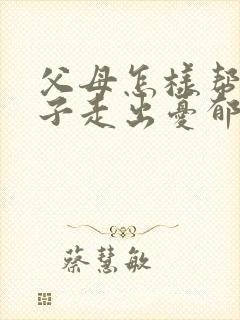 父母怎樣幫
子走出憂郁
蔡慧敏